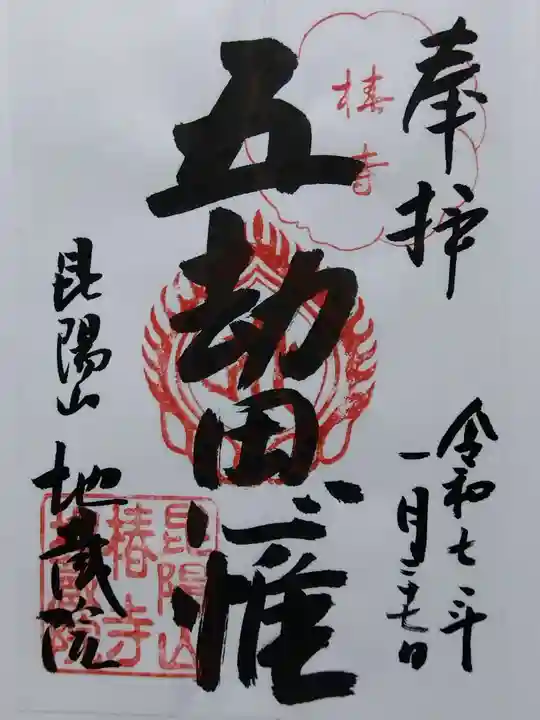 奉拝
椿寺
令和七年
一月二十七日
五劫思惟
昆陽山 地蔵院
昆陽山
椿寺
地蔵院